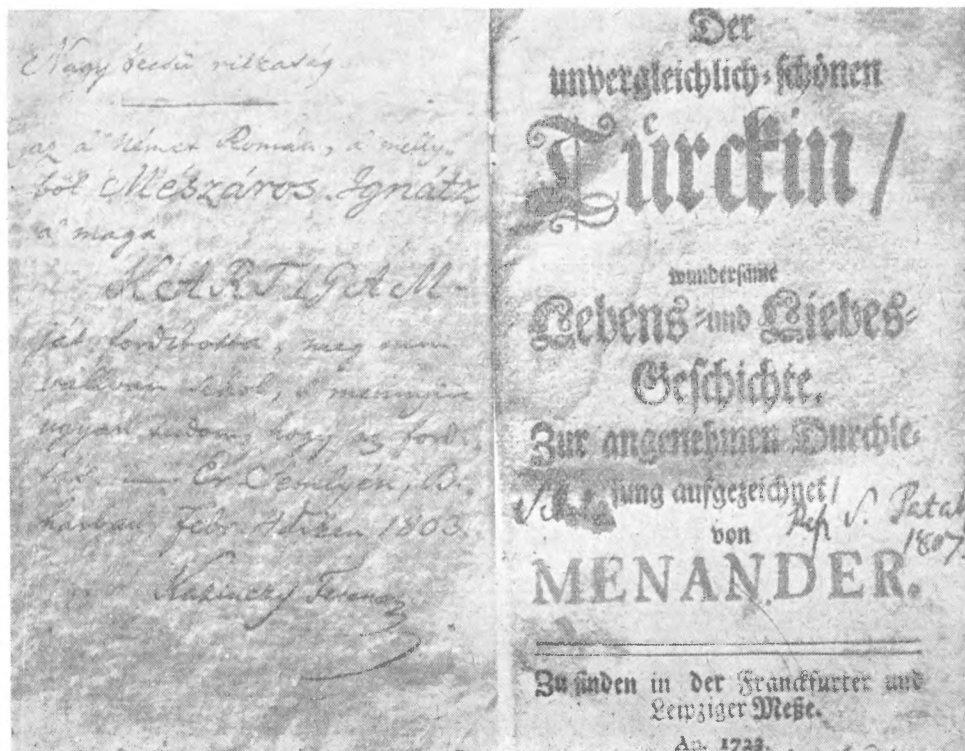 Nagy betsű ritkaság
az a' Német Román, a' melly-
ből Mészáros Ignátz
a' maga
KARTIGAM-
ját fordította, meg nem
vallván sehol, a' mennyire
ugyan tudom, hogy az ford.
— Ér Semlyén, Bi-
harban, Febr. 1803.
Kazinczy Ferencz
Der
unvergleichlich-schönen
Türckin/
wundersame
Lebens- und Liebes-
Geschichte.
Zur angenehmen Durchle-
sung aufgezeichnet/
von
MENANDER.
Ref S. Patak
1807
Zu finden in der Franckfurter und
Leipziger Meße.
An. 1723.